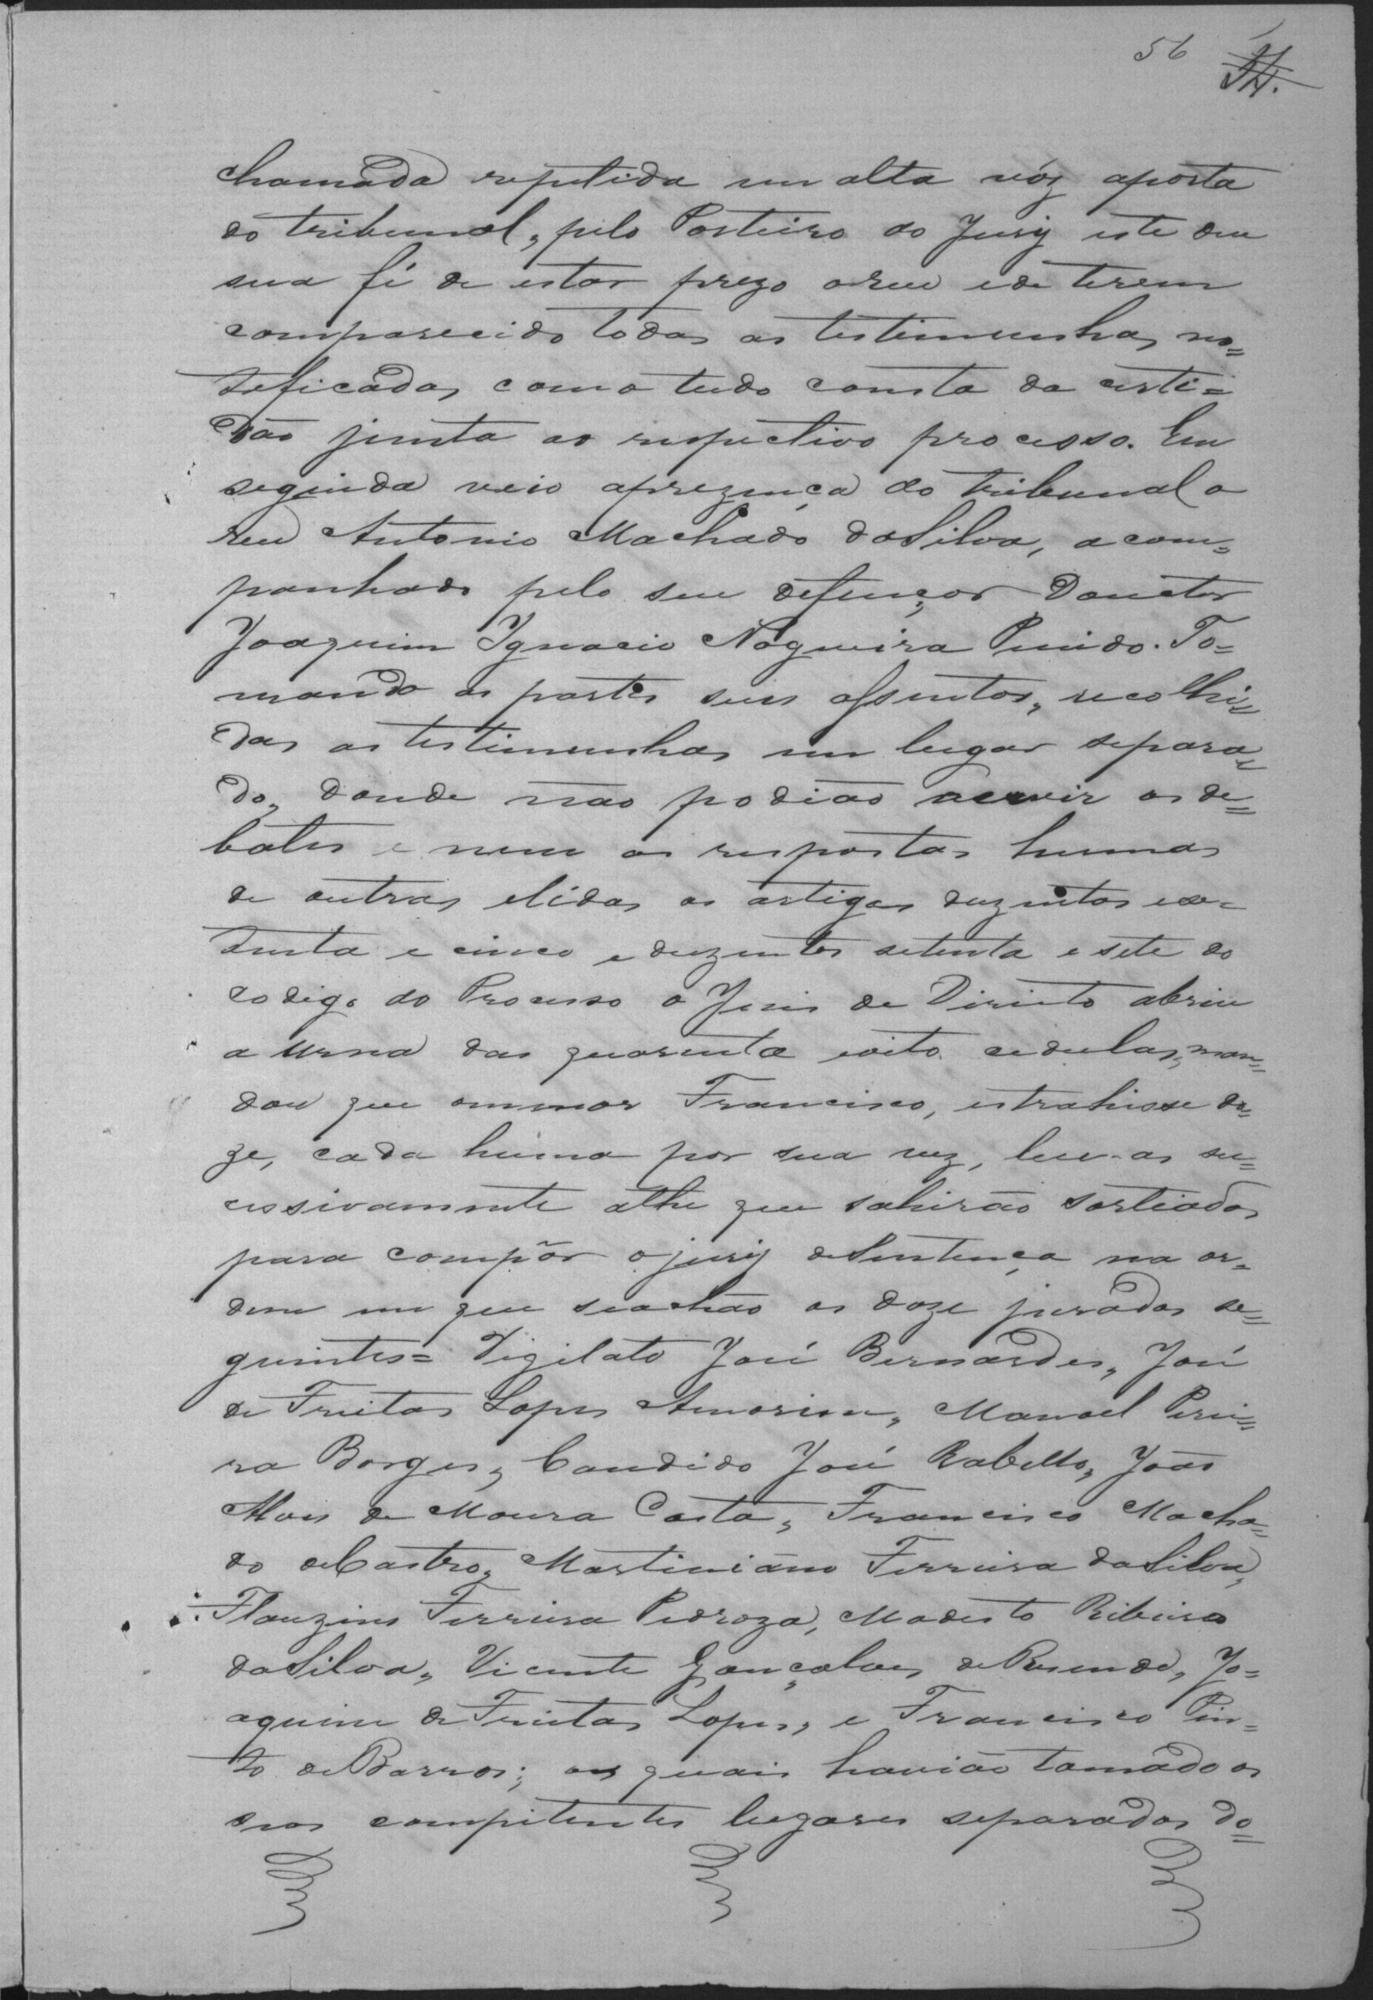 56 54.
chamada repetida em alta vóz aporta
do tribunal, pelo Porteiro do Jury este deu
sua fé de estar prezo oreu ede terem
comparecido todas as testimunhas no=
teficadas como tudo consta da certi=
dão junta ao respectivo processo. Em
seginda veio aprezença do tribunal o
reu Antonio Machado daSilva, acom=
panhado pelo seu defençor Douctor
Joaquim Ignacio Nogueira Penido. To=
mando as partes seus assentos, recolhi=
das as testimunhas em lugar separa=
do, donde não podião ouvir os de=
bates e nem as respostas humas
de outras elidos os artigos duzentos ece=
tenta e cinco e duzentos setenta e sete do
codigo do Processo o Juis de Direito abriu
a Urna das quarenta eoito cedulas, man=
dou que omenor Francisco, estrahisse do=
ze, cada huma por sua vez, leu-as su=
cessivamente athe que sahirão sortiados
para compôr o jury deSentença na or=
dem em que seachão os doze jurados se=
guintes= Vigilato José Bernardes, José
de Freitas Lopes Amorim, Manoel Perei=
ra Borges, Candido José Rabello, João
Alves de Moura Costa, Francisco Macha=
do deCastro, Martiniano Ferreira daSilva,
Flauzino Ferreira Pedroza, Modesto Ribeiro
daSilva, Vicente Gonçalves deResende, Jo=
aquim de Freitas Lopes, e Francisco Pin=
to deBarros; os quais havião tomado os
seos competentes lugares separados do=